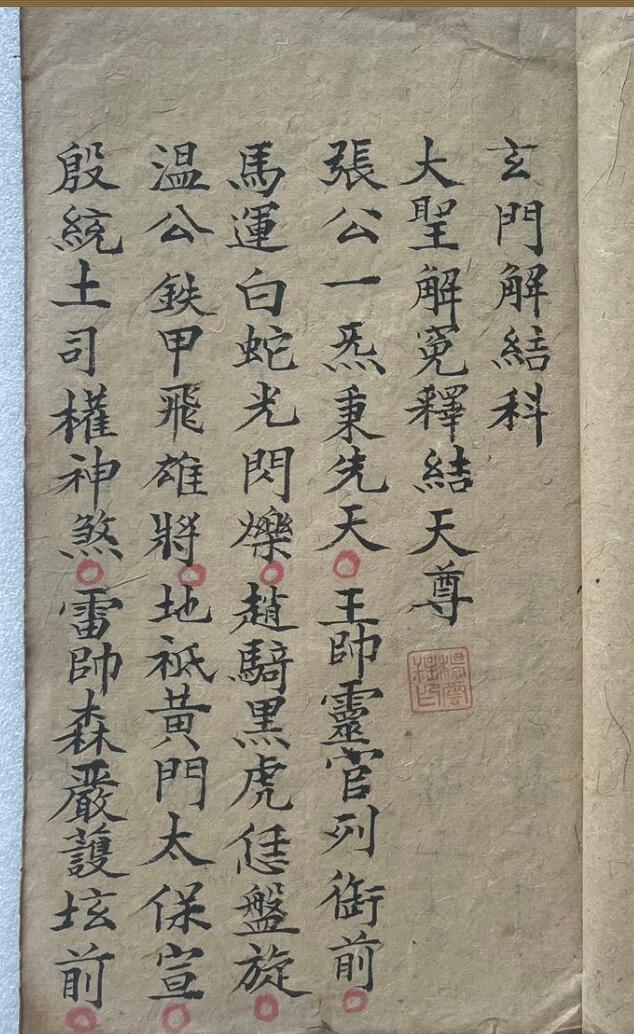 玄門解結科
大聖解寃釋結天尊
楊雲桂印
張公一炁秉先天王帥靈官列衙前
馬運白蛇光閃爍趙騎黑虎恁盤旋
温公鉄甲飛雄將地袛黃門太保宣
殷統土司權神煞雷帥森嚴護坛前